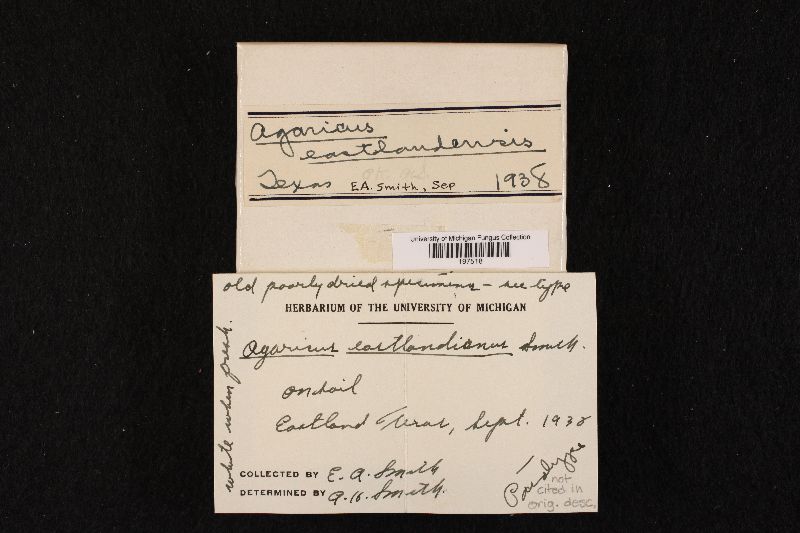 Agaricus
eastlandensis
Texas E.A. Smith, Sep 1938
University of Michigan Fungus Collection
197518
old poorly dried specimens - see type
HERBARIUM OF THE UNIVERSITY OF MICHIGAN
Agaricus eastlandianus Smith.
on soil
Eastland Texas, Sept. 1938
white when fresh.
COLLECTED BY E. A. Smith
DETERMINED BY A. H. Smith.
Paratype
not
cited in
orig. desc.